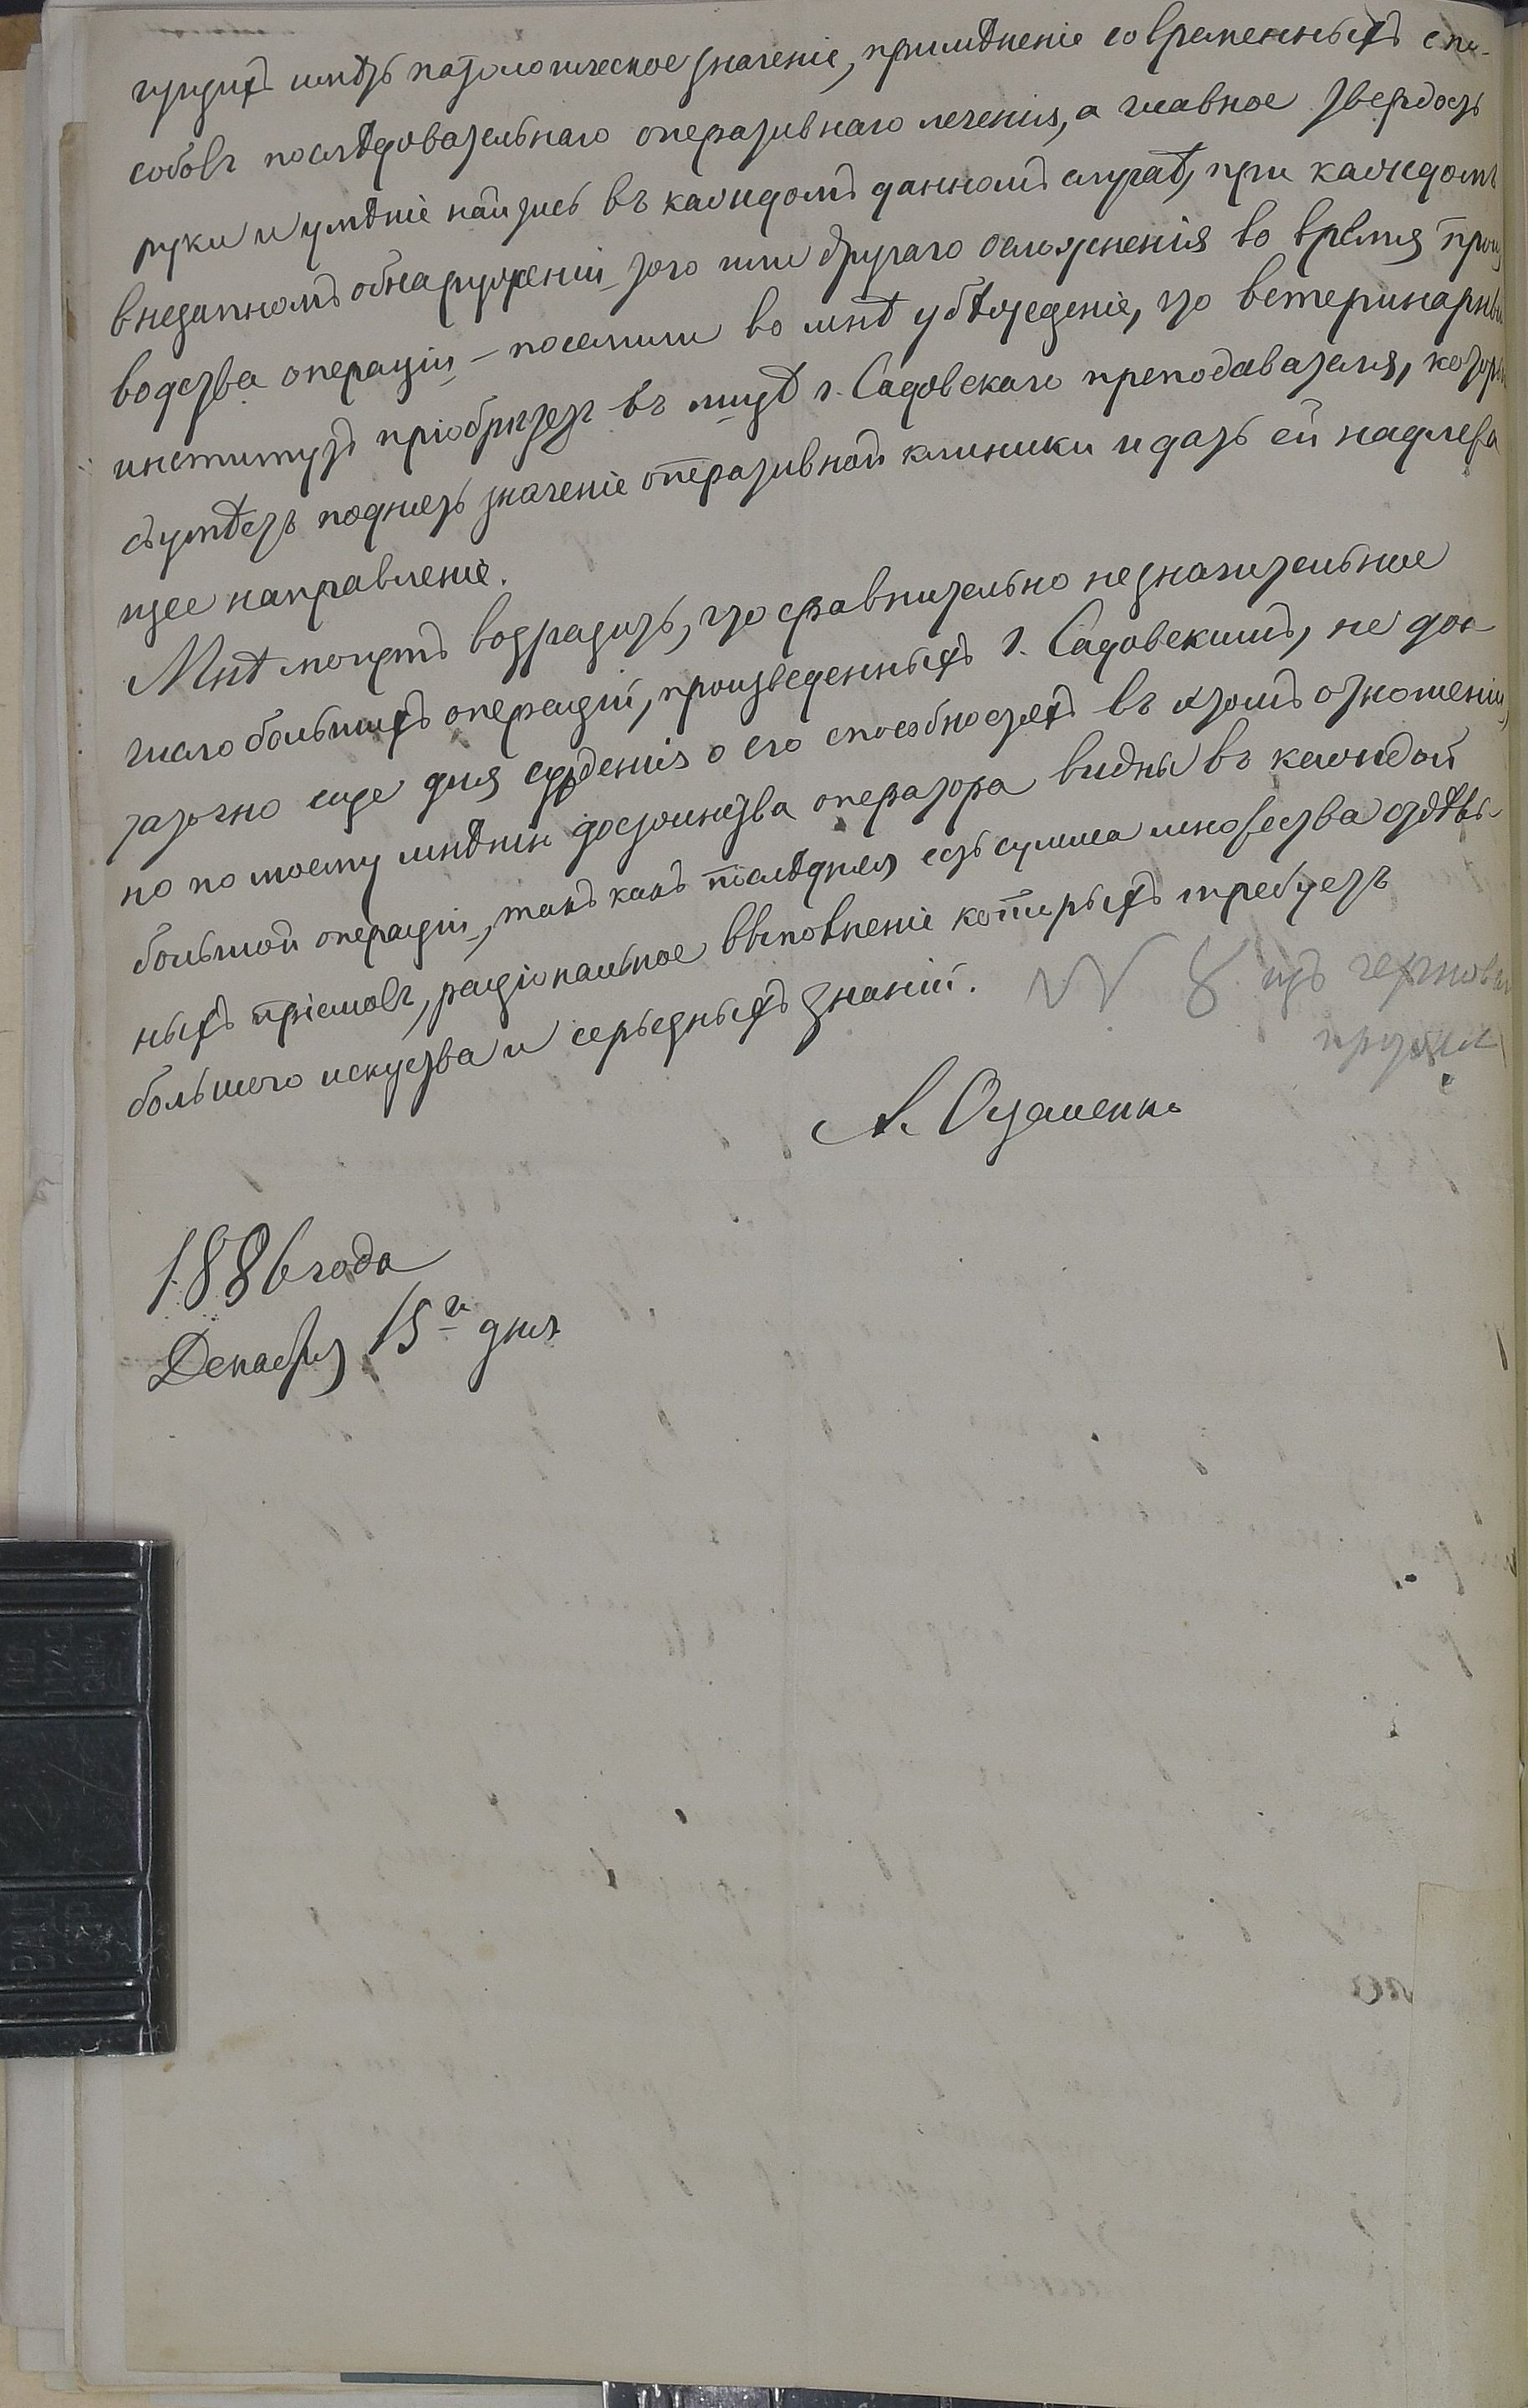 гущихъ имѣть патологическое значеніе, примѣненіе современныхъ спо-
собовъ послѣдовательнаго оперативнаго леченія, а главное твердость
руки и умѣніе найтись въ каждомъ данномъ случаѣ, при каждомъ
внезапномъ обнаруженіи того или другаго осложненія во время произ
водства операціи – поселили во мнѣ убѣжденіе, что ветеринарный
институтъ пріобрѣтетъ въ лицѣ г. Садовскаго преподавателя, который
съумѣетъ поднять значеніе оперативной клиники и дать ей надлежа
щее направленіе.
Мнѣ могутъ возразить, что сравнительно незначительное
число большихъ операцій, произведенныхъ г. Садовскимъ, не дос
таточно еще для сужденія о его способностяхъ въ этомъ отношеніи,
но по моему мнѣнію достоинства оператора видны въ каждой
большой операціи, такъ какъ послѣдняя есть сумма множества отдѣль-
ныхъ пріемовъ, раціональное выполненіе которыхъ требуетъ
большого искуства и серьезныхъ знаній.
N 8 изъ
А. Остапенко
1886 года
Декабря 15го дня